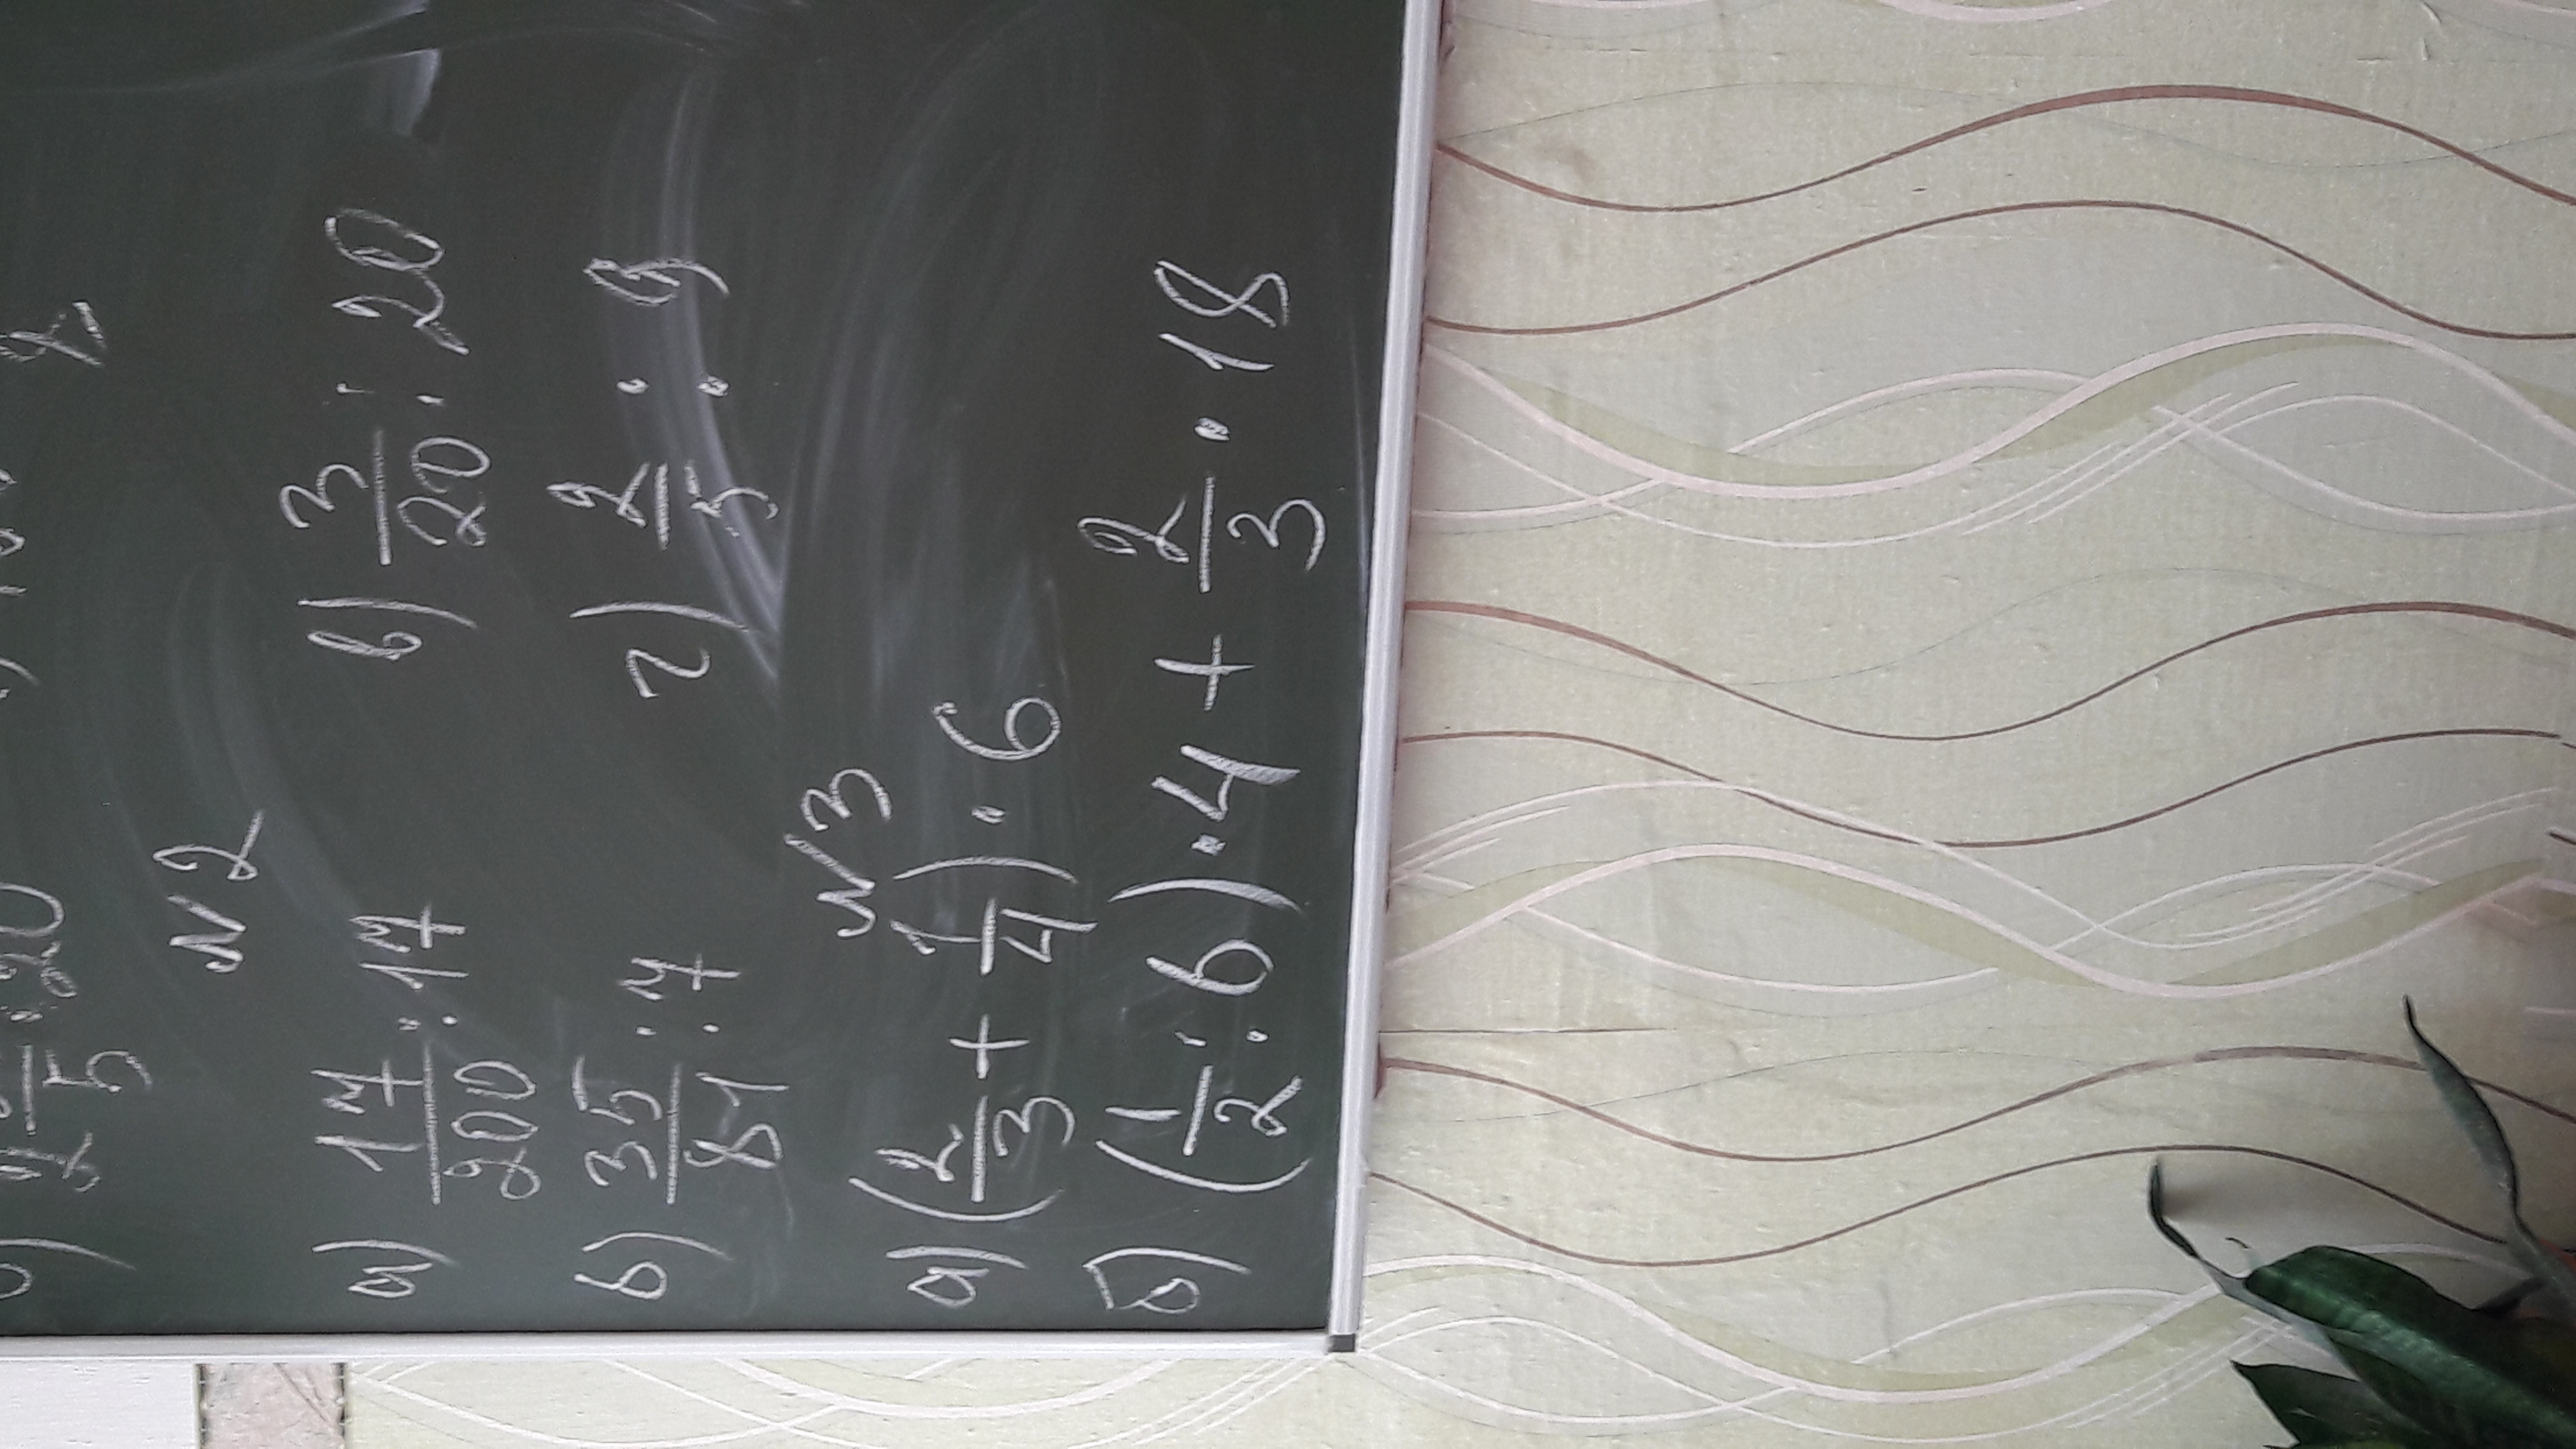 8
5 : 20
N 2
а) 17/200 : 17 в) 3/20 : 20
б) 35/81 : 7 г) 2/3 : 9
N 3
а) (2/3 + 1/4) · 6
б) (1/2 : 6) · 4 + 2/3 · 18